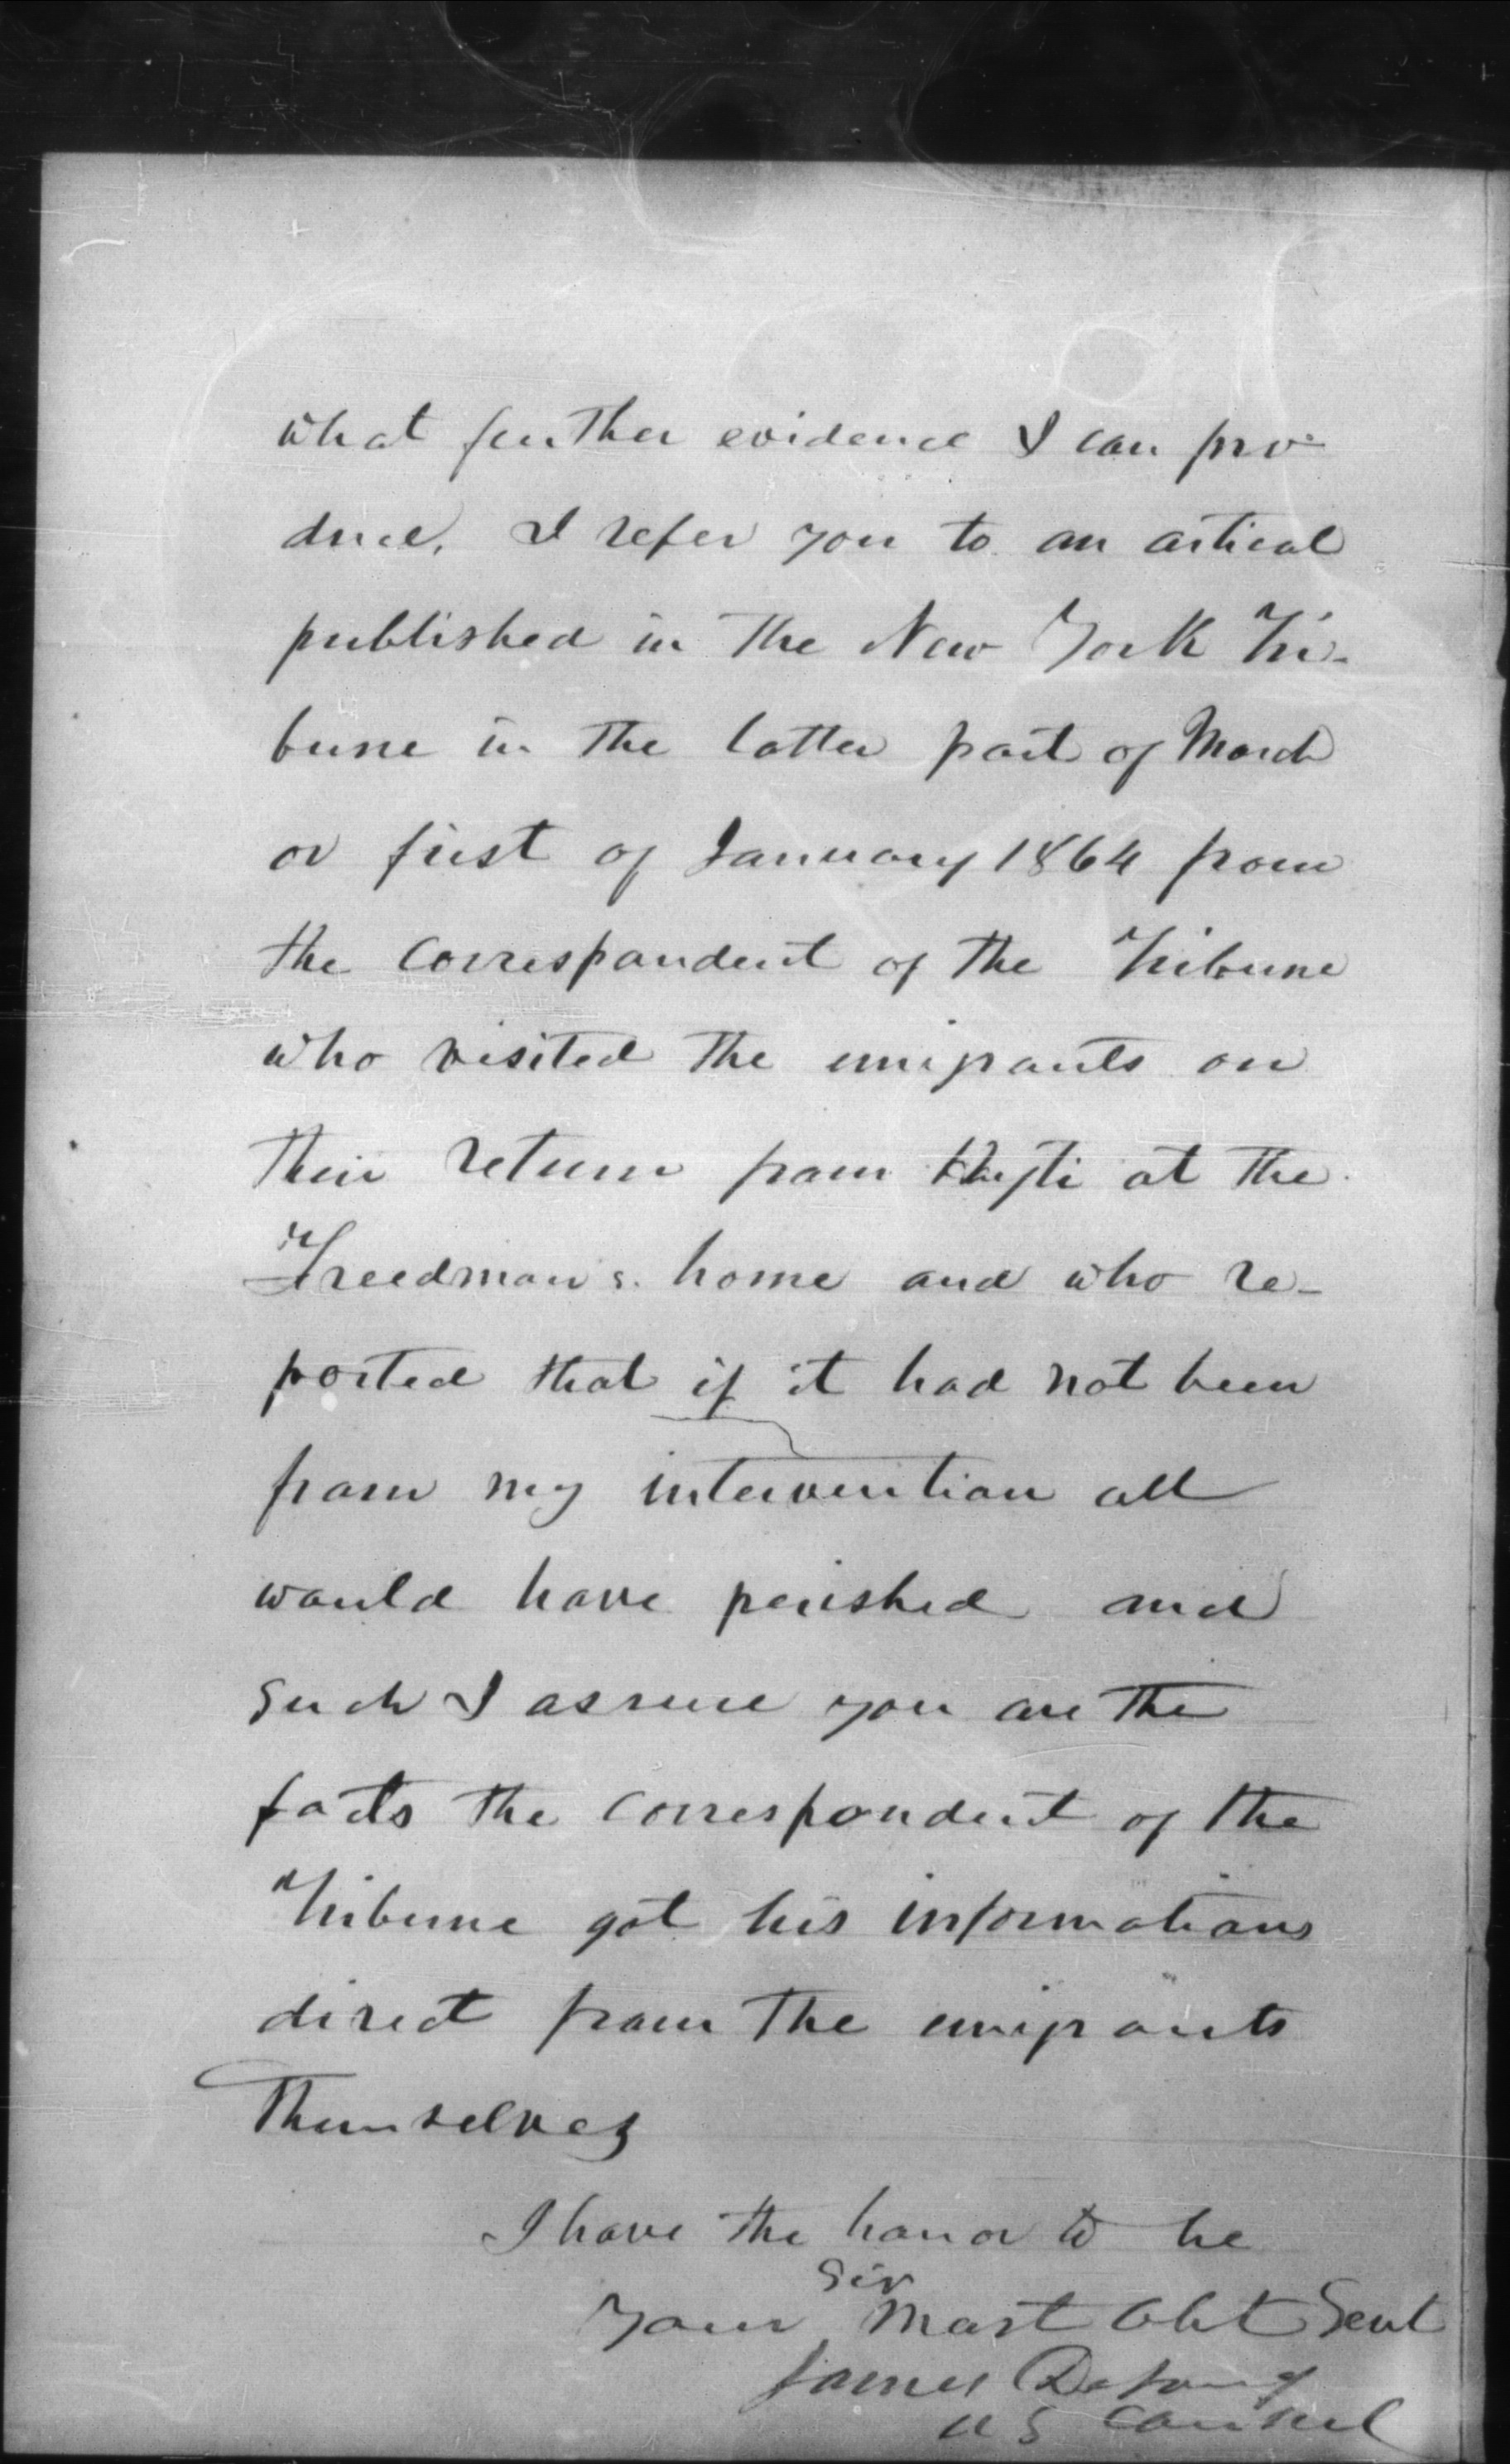 what further evidence I can pro-
duce, I refer you to an artical
published in the New York Tri-
bune in the latter part of March
or first of January 1864 from
the correspondent of the Tribune
who visited the emigrants on
their return from Hayti at the
Freedman's home and who re-
ported that if it had not been
from my intervention all
would have perished and
such I assure you are the
facts the correspondent of the
Tribune got his informations
direct from the emigrants
themselves
I have the honor to be
Sir
Your Most Obt Sevt
James DeLong
US Consul